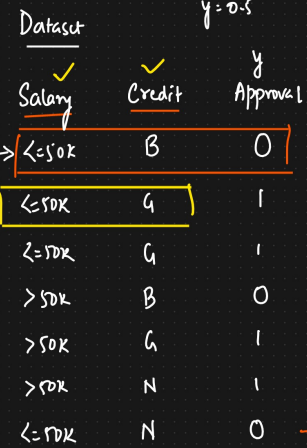 y = 0.5
Dataset
y
Salary Credit Approval
<=50K B 0
<=50K G 1
<=50K G 1
>50K B 0
>50K G 1
>50K N 1
<=50K N 0